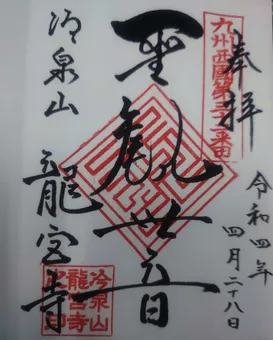 奉拝
九州西国第三十二番
令和四年
四月二十八日
聖観世音
冷泉山
龍宮寺
冷泉山
龍宮寺